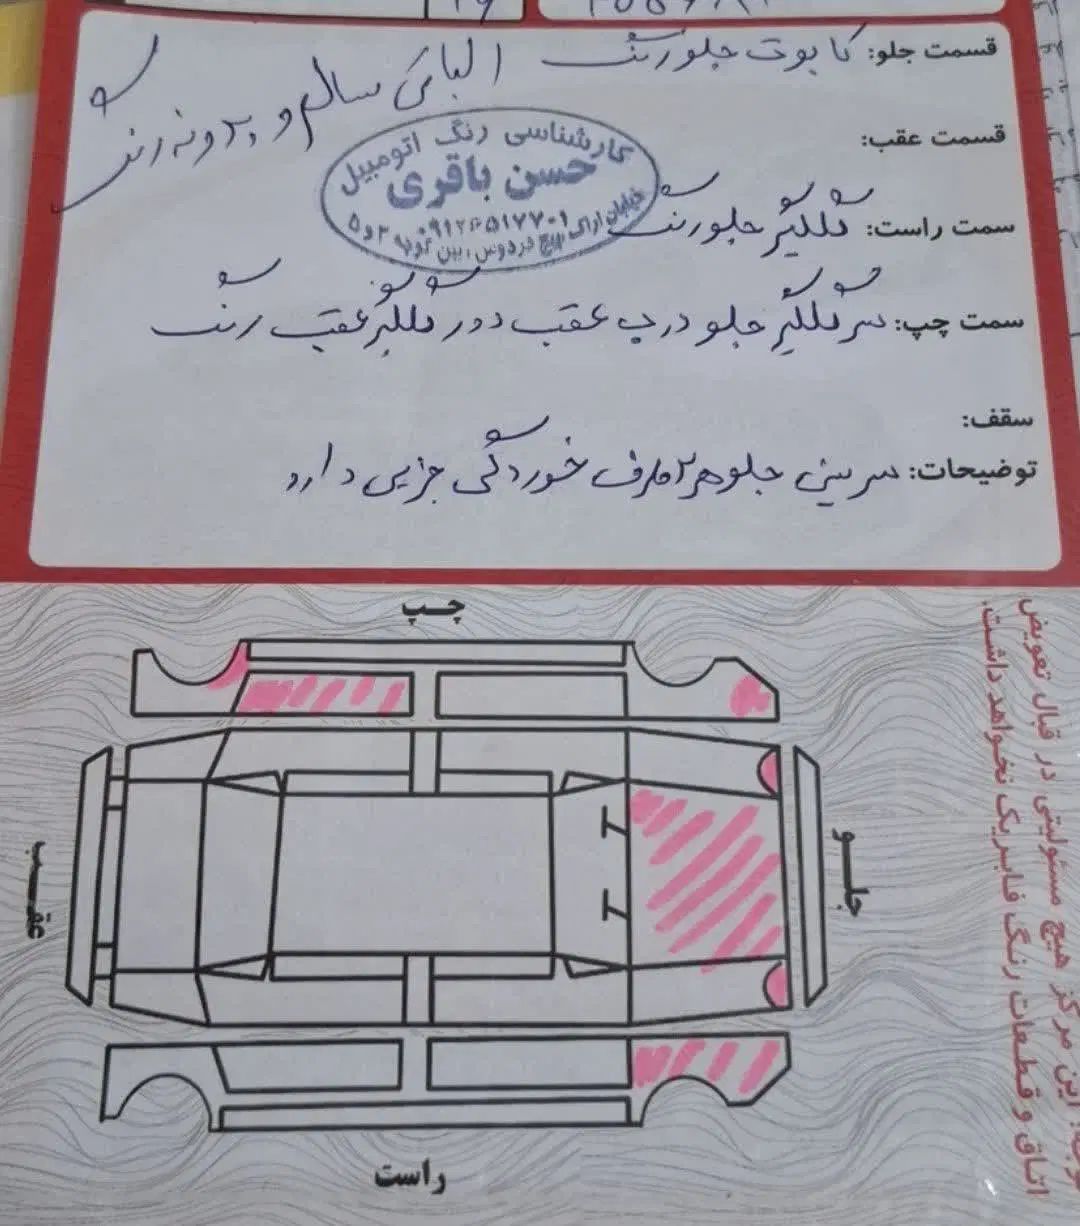 قسمت جلو: کاپوت جلو رنگ
الباقی سالم و بدونه رنگ
قسمت عقب:
کارشناسی رنگ اتومبیل
حسن باقری
۰۹۱۲۶۵۱۷۷۰۱
فردوس، بین کوچه ۳ و ۵
سمت راست: گلگیر جلو رنگ
سمت چپ: سر گلگیر جلو درب عقب دور گلگیر عقب رنگ
سقف:
توضیحات: سر سینی جلو هر ۲ طرف خوردگی جزیی دارد
چپ
جلو
عقب
راست
این مرکز هیچ مسئولیتی در قبال تعویض
اتاق و قطعات رنگ فابریک نخواهد داشت.